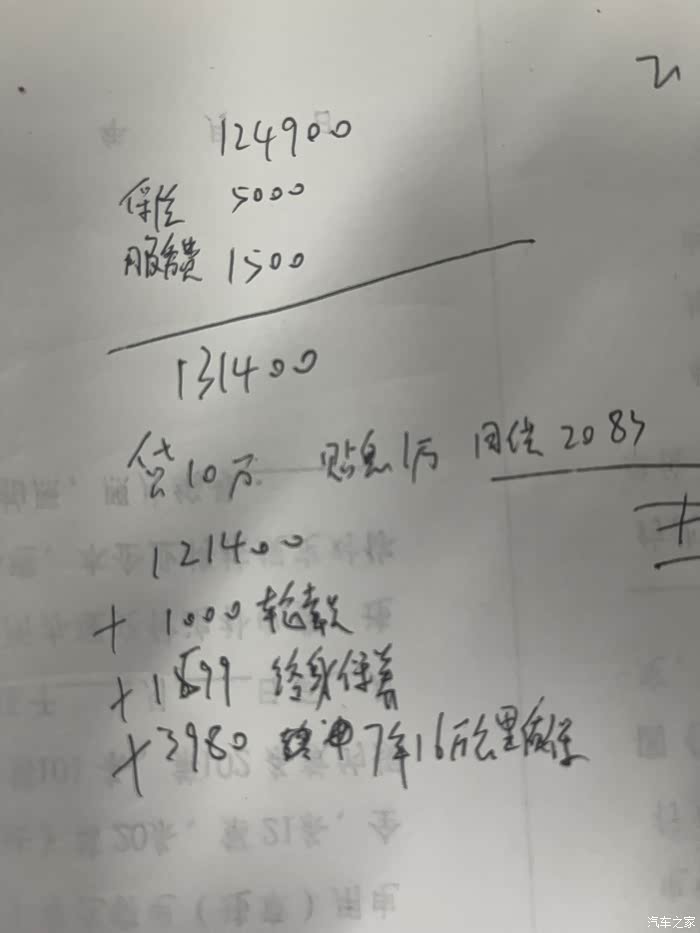 124900
保险 5000
服务费 1500
131400
贷10万 贴息1万 月供 2083
121400
+ 1000 轮毂
+ 1899 终身保养
+ 3980 7年16万公里
汽车之家